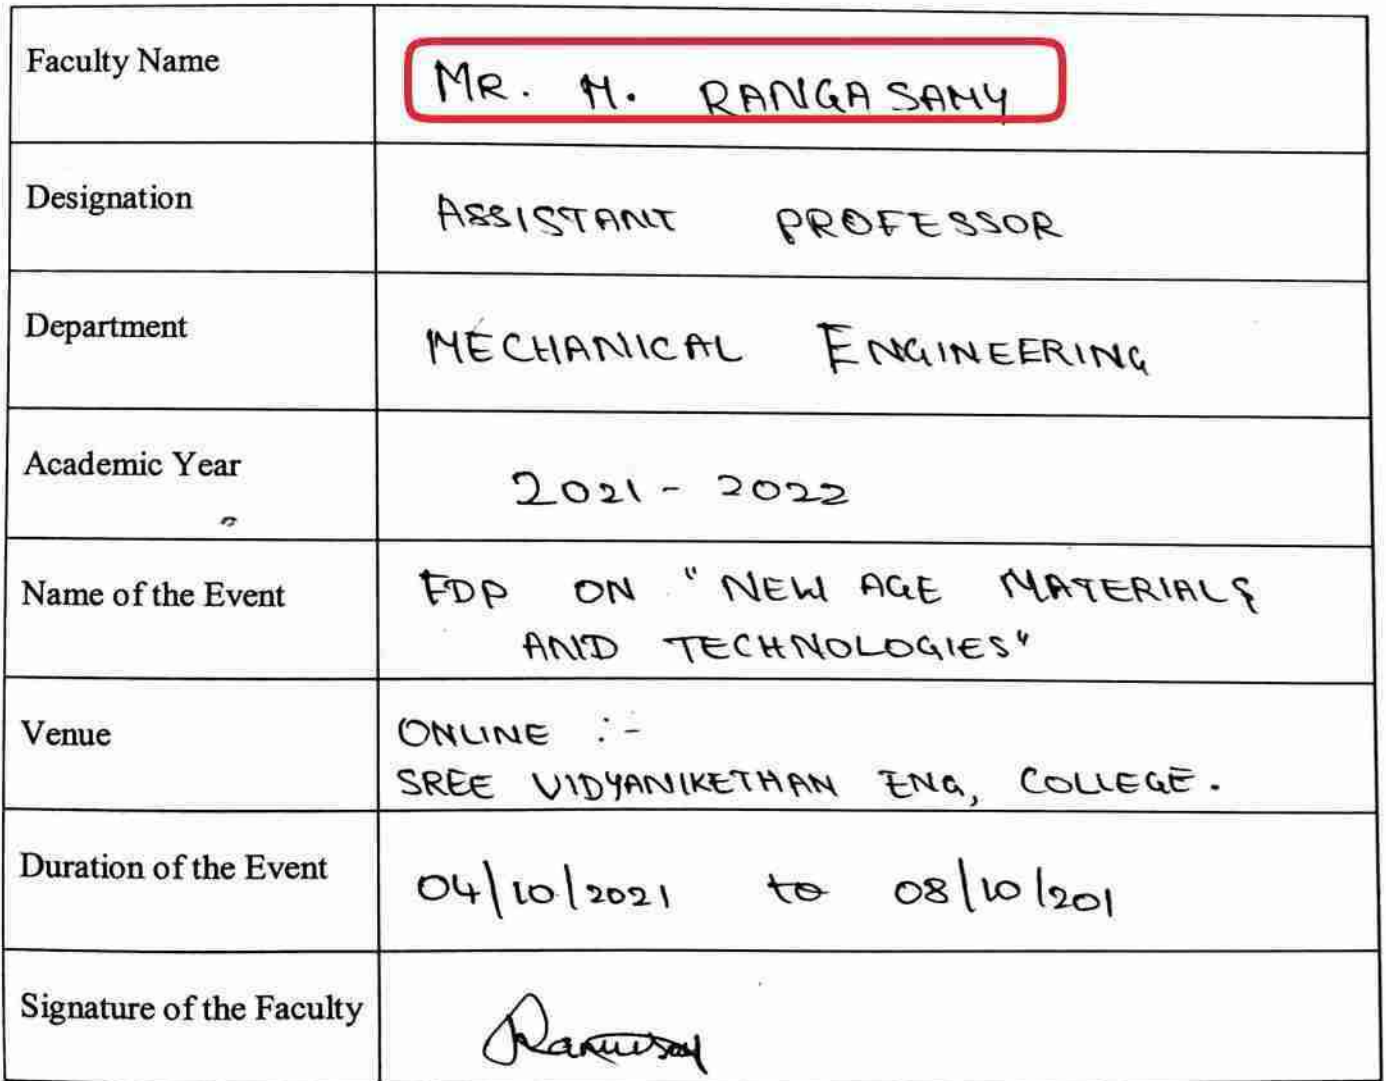 Faculty Name
MR. M. RANGASAMY
Designation
ASSISTANT PROFESSOR
Department
MECHANICAL ENGINEERING
Academic Year
2021 - 2022
Name of the Event
FDP ON "NEW AGE MATERIALS
AND TECHNOLOGIES"
Venue
ONLINE :-
SREE VIDYANIKETHAN ENG, COLLEGE.
Duration of the Event
04/10/2021 to 08/10/201
Signature of the Faculty